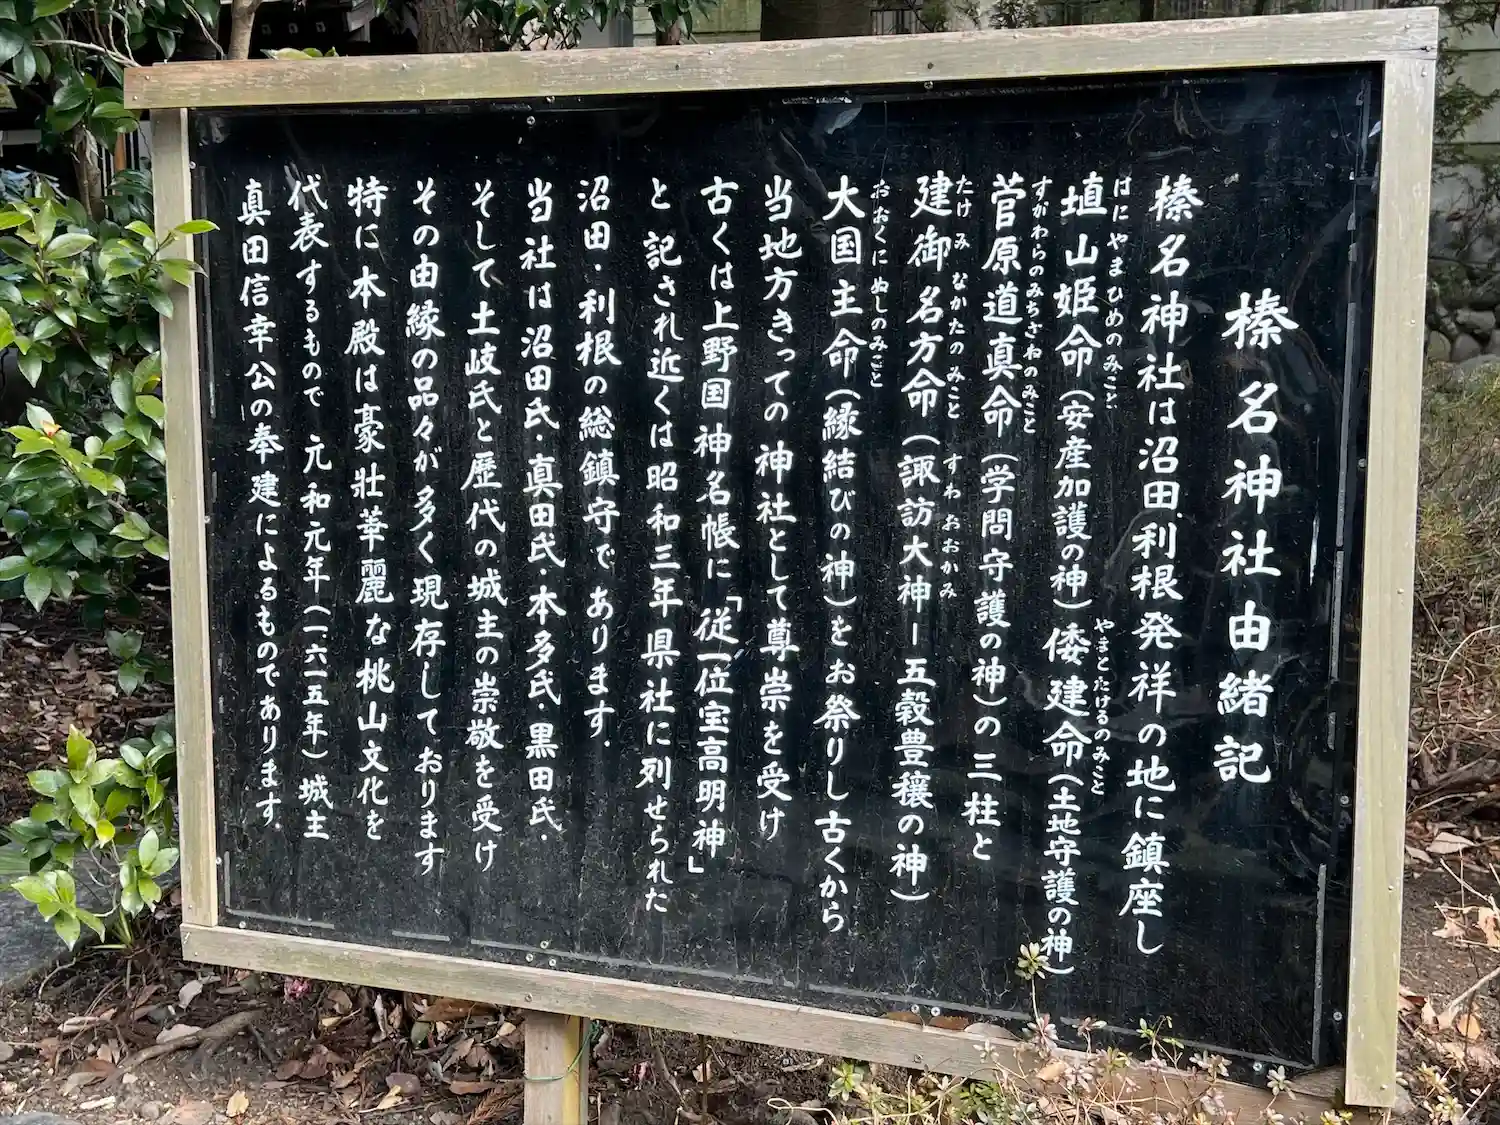 榛名神社由緒記
榛名神社は沼田.利根発祥の地に鎮座し
はにやまひめのみこと
やまとたけるのみこと
埴山姫命(安産加護の神)倭建命(土地守護の神)
すがわらのみちざねのみこと
菅原道真命(学問守護の神)の三柱と
たけみなかたのみこと
すわおおかみ
建御名方命(諏訪大神ー五穀豊穣の神)
おおくにぬしのみこと
大国主命(縁結びの神)をお祭りし古くから
当地方きっての神社として尊崇を受け
古くは上野国神名帳に「従一位宝高明神」
と記され近くは昭和三年県社に列せられた
沼田・利根の総鎮守であります.
当社は沼田氏・真田氏・本多氏・黒田氏・
そして土岐氏と歴代の城主の崇敬を受け
その由縁の品々が多く現存しております
特に本殿は豪壮華麗な桃山文化を
代表するもので元和元年(一六一五年)城主
真田信幸公の奉建によるものであります.